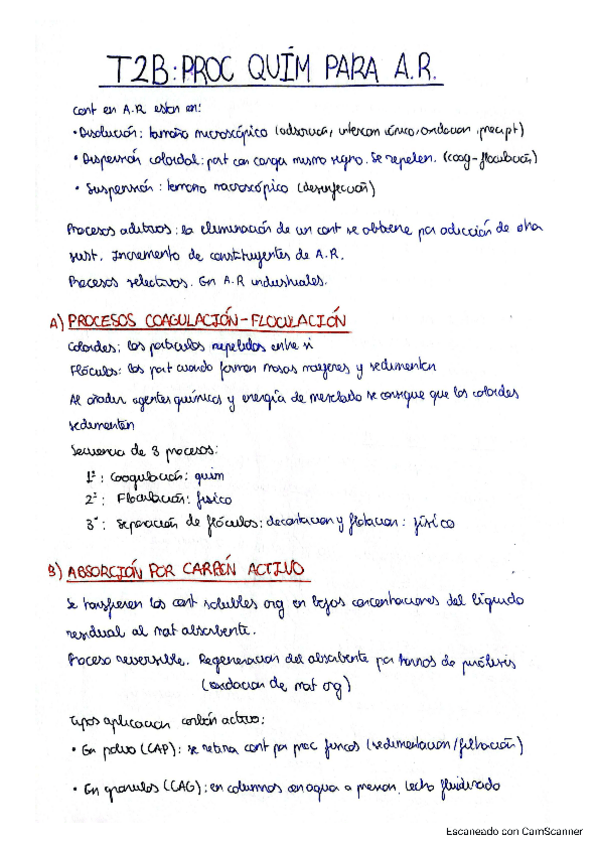 T2B: PROC QUÍM PARA A.R.
Cont en A.R estan en:
• Disolución: tamaño microscópico (adsorción, intercam iónico, oxidacion, precipt)
• Dispersión coloidal: part con carga mismo signo. Se repelen. (coag-floculación)
• Suspensión: tamaño macroscópico (desinfección)
Procesos aditivos: la eliminación de un cont se obtiene por adicción de otra
sust. Incremento de constituyentes de A.R.
Procesos selectivos. En A.R industriales.
A) PROCESOS COAGULACIÓN-FLOCULACIÓN
Coloides: las partículas repelidas entre si
Flóculos: las part cuando forman masas mayores y sedimentan
Al añadir agentes químicos y energía de mezclado se consigue que los coloides
sedimenten
Secuencia de 3 procesos:
1º: Coagulación: quim
2º: Floculación: físico
3º: Separación de flóculos: decantacion y flotacion: físico
B) ABSORCIÓN POR CARBÓN ACTIVO
Se transfieren los cont solubles org en bajas concentraciones del líquido
residual al mat absorbente.
Proceso reversible. Regeneracion del absorbente por hornos de pirólisis
(oxidacion de mat org)
Tipos aplicacion carbón activo:
• En polvo (CAP): se retira cont por proc físicos (sedimentacion/filtración)
• En granulos (CAG): en columnas con agua a presion, lecho fluidizado
Escaneado con CamScanner